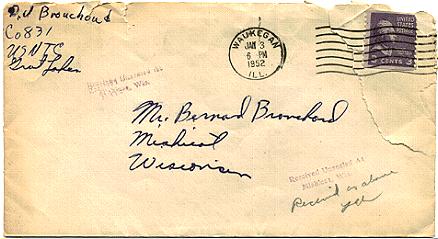 D J Brouchoud
Co 831
USNTC
Great Lakes
WAUKEGAN
JAN 3
6 PM
1952
ILL.
UNITED STATES
POSTAGE
3 CENTS 3
Received Unsealed At
Mishicot, Wis.
Mr. Bernard Brouchoud
Mishicot
Wisconsin
Received Unsealed At
Mishicot, Wis.
Received as above